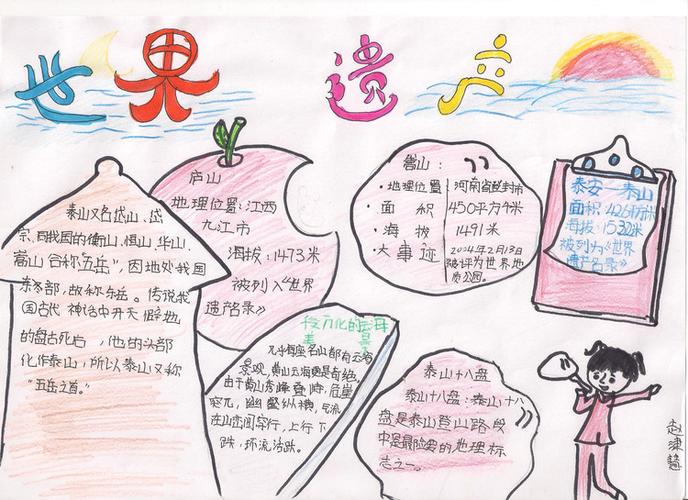 世界遗产
泰山又名岱山、岱
宗,同我国的衡山、恒山、华山、
嵩山合称"五岳",因地处我国
东部,故称东岳。传说我
国古代神话中开天辟地
的盘古死后,他的头部
化作泰山,所以泰山又称
"五岳之首。"
庐山
地理位置:江西
九江市
海拔:1473米
被列入《世界
遗产名录》
嵩山:
·地理位置 河南省登封市
·面积 450平方千米
·海拔 1491米
·大事迹 2004年2月13日
被评为世界地
质公园。
泰安—泰山
面积:426平方米
海拔:1532米
被列为《世界
遗产名录》
变万化的云海
美景
几乎每座名山都有云海
景观,黄山云海更是奇绝。
由于黄山秀峰叠峙,危崖
突兀,幽壑纵横,气流
在山峦间穿行,上行下
跌,环流活跃。
泰山十八盘
泰山十八盘:泰山十八
盘是泰山登山路段
中最险要的地理标
志之一。